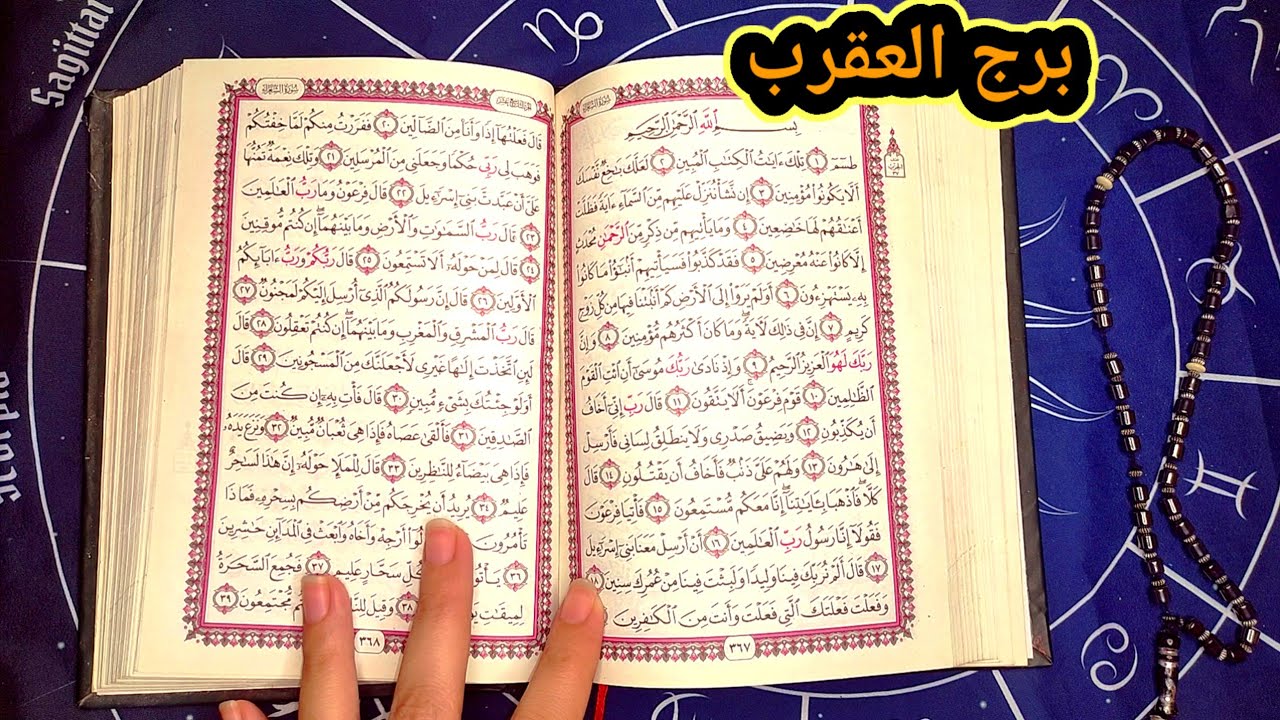 برج العقرب
Sagittar
Scorpio
سورة الشعراء
بِسْمِ ٱللَّهِ ٱلرَّحْمَٰنِ ٱلرَّحِيمِ
طسٓمٓ ١ تِلْكَ ءَايَٰتُ ٱلْكِتَٰبِ ٱلْمُبِينِ ٢ لَعَلَّكَ بَٰخِعٌ نَّفْسَكَ
أَلَّا يَكُونُوا۟ مُؤْمِنِينَ ٣ إِن نَّشَأْ نُنَزِّلْ عَلَيْهِم مِّنَ ٱلسَّمَآءِ ءَايَةً فَظَلَّتْ
أَعْنَٰقُهُمْ لَهَا خَٰضِعِينَ ٤ وَمَا يَأْتِيهِم مِّن ذِكْرٍ مِّنَ ٱلرَّحْمَٰنِ مُحْدَثٍ
إِلَّا كَانُوا۟ عَنْهُ مُعْرِضِينَ ٥ فَقَدْ كَذَّبُوا۟ فَسَيَأْتِيهِمْ أَنۢبَٰٓؤُا۟ مَا كَانُوا۟
بِهِۦ يَسْتَهْزِءُونَ ٦ أَوَلَمْ يَرَوْا۟ إِلَى ٱلْأَرْضِ كَمْ أَنۢبَتْنَا فِيهَا مِن كُلِّ زَوْجٍ
كَرِيمٍ ٧ إِنَّ فِى ذَٰلِكَ لَءَايَةً وَمَا كَانَ أَكْثَرُهُم مُّؤْمِنِينَ ٨ وَإِنَّ
رَبَّكَ لَهُوَ ٱلْعَزِيزُ ٱلرَّحِيمُ ٩ وَإِذْ نَادَىٰ رَبُّكَ مُوسَىٰٓ أَنِ ٱئْتِ ٱلْقَوْمَ
ٱلظَّٰلِمِينَ ١٠ قَوْمَ فِرْعَوْنَ أَلَا يَتَّقُونَ ١١ قَالَ رَبِّ إِنِّىٓ أَخَافُ
أَن يُكَذِّبُونِ ١٢ وَيَضِيقُ صَدْرِى وَلَا يَنطَلِقُ لِسَانِى فَأَرْسِلْ
إِلَىٰ هَٰرُونَ ١٣ وَلَهُمْ عَلَىَّ ذَنۢبٌ فَأَخَافُ أَن يَقْتُلُونِ ١٤ قَالَ
كَلَّا فَٱذْهَبَا بِـَٔايَٰتِنَآ إِنَّا مَعَكُم مُّسْتَمِعُونَ ١٥ فَأْتِيَا فِرْعَوْنَ
فَقُولَآ إِنَّا رَسُولُ رَبِّ ٱلْعَٰلَمِينَ ١٦ أَنْ أَرْسِلْ مَعَنَا بَنِىٓ إِسْرَٰٓءِيلَ
١٧ قَالَ أَلَمْ نُرَبِّكَ فِينَا وَلِيدًا وَلَبِثْتَ فِينَا مِنْ عُمُرِكَ سِنِينَ ١٨
وَفَعَلْتَ فَعْلَتَكَ ٱلَّتِى فَعَلْتَ وَأَنتَ مِنَ ٱلْكَٰفِرِينَ
٣٦٧
سورة الشعراء
قَالَ فَعَلْتُهَآ إِذًا وَأَنَا۠ مِنَ ٱلضَّآلِّينَ ٢٠ فَفَرَرْتُ مِنكُمْ لَمَّا خِفْتُكُمْ
فَوَهَبَ لِى رَبِّى حُكْمًا وَجَعَلَنِى مِنَ ٱلْمُرْسَلِينَ ٢١ وَتِلْكَ نِعْمَةٌ تَمُنُّهَا
عَلَىَّ أَنْ عَبَّدتَّ بَنِىٓ إِسْرَٰٓءِيلَ ٢٢ قَالَ فِرْعَوْنُ وَمَا رَبُّ ٱلْعَٰلَمِينَ
٢٣ قَالَ رَبُّ ٱلسَّمَٰوَٰتِ وَٱلْأَرْضِ وَمَا بَيْنَهُمَآ إِن كُنتُم مُّوقِنِينَ
٢٤ قَالَ لِمَنْ حَوْلَهُۥٓ أَلَا تَسْتَمِعُونَ ٢٥ قَالَ رَبُّكُمْ وَرَبُّ ءَابَآئِكُمُ
ٱلْأَوَّلِينَ ٢٦ قَالَ إِنَّ رَسُولَكُمُ ٱلَّذِىٓ أُرْسِلَ إِلَيْكُمْ لَمَجْنُونٌ ٢٧
قَالَ رَبُّ ٱلْمَشْرِقِ وَٱلْمَغْرِبِ وَمَا بَيْنَهُمَآ إِن كُنتُمْ تَعْقِلُونَ ٢٨ قَالَ
لَئِنِ ٱتَّخَذْتَ إِلَٰهًا غَيْرِى لَأَجْعَلَنَّكَ مِنَ ٱلْمَسْجُونِينَ ٢٩ قَالَ
أَوَلَوْ جِئْتُكَ بِشَىْءٍ مُّبِينٍ ٣٠ قَالَ فَأْتِ بِهِۦٓ إِن كُنتَ مِنَ
ٱلصَّٰدِقِينَ ٣١ فَأَلْقَىٰ عَصَاهُ فَإِذَا هِىَ ثُعْبَانٌ مُّبِينٌ ٣٢ وَنَزَعَ يَدَهُۥ
فَإِذَا هِىَ بَيْضَآءُ لِلنَّٰظِرِينَ ٣٣ قَالَ لِلْمَلَإِ حَوْلَهُۥٓ إِنَّ هَٰذَا لَسَٰحِرٌ
عَلِيمٌ ٣٤ يُرِيدُ أَن يُخْرِجَكُم مِّنْ أَرْضِكُم بِسِحْرِهِۦ فَمَاذَا
تَأْمُرُونَ لُوٓا۟ أَرْجِهْ وَأَخَاهُ وَٱبْعَثْ فِى ٱلْمَدَآئِنِ حَٰشِرِينَ
٣٦ يَأْتُو لِّ سَحَّارٍ عَلِيمٍ ٣٧ فَجُمِعَ ٱلسَّحَرَةُ
لِمِيقَٰتِ ٣٨ وَقِيلَ لِلنَّا م مُّجْتَمِعُونَ ٣٩
٣٦٨